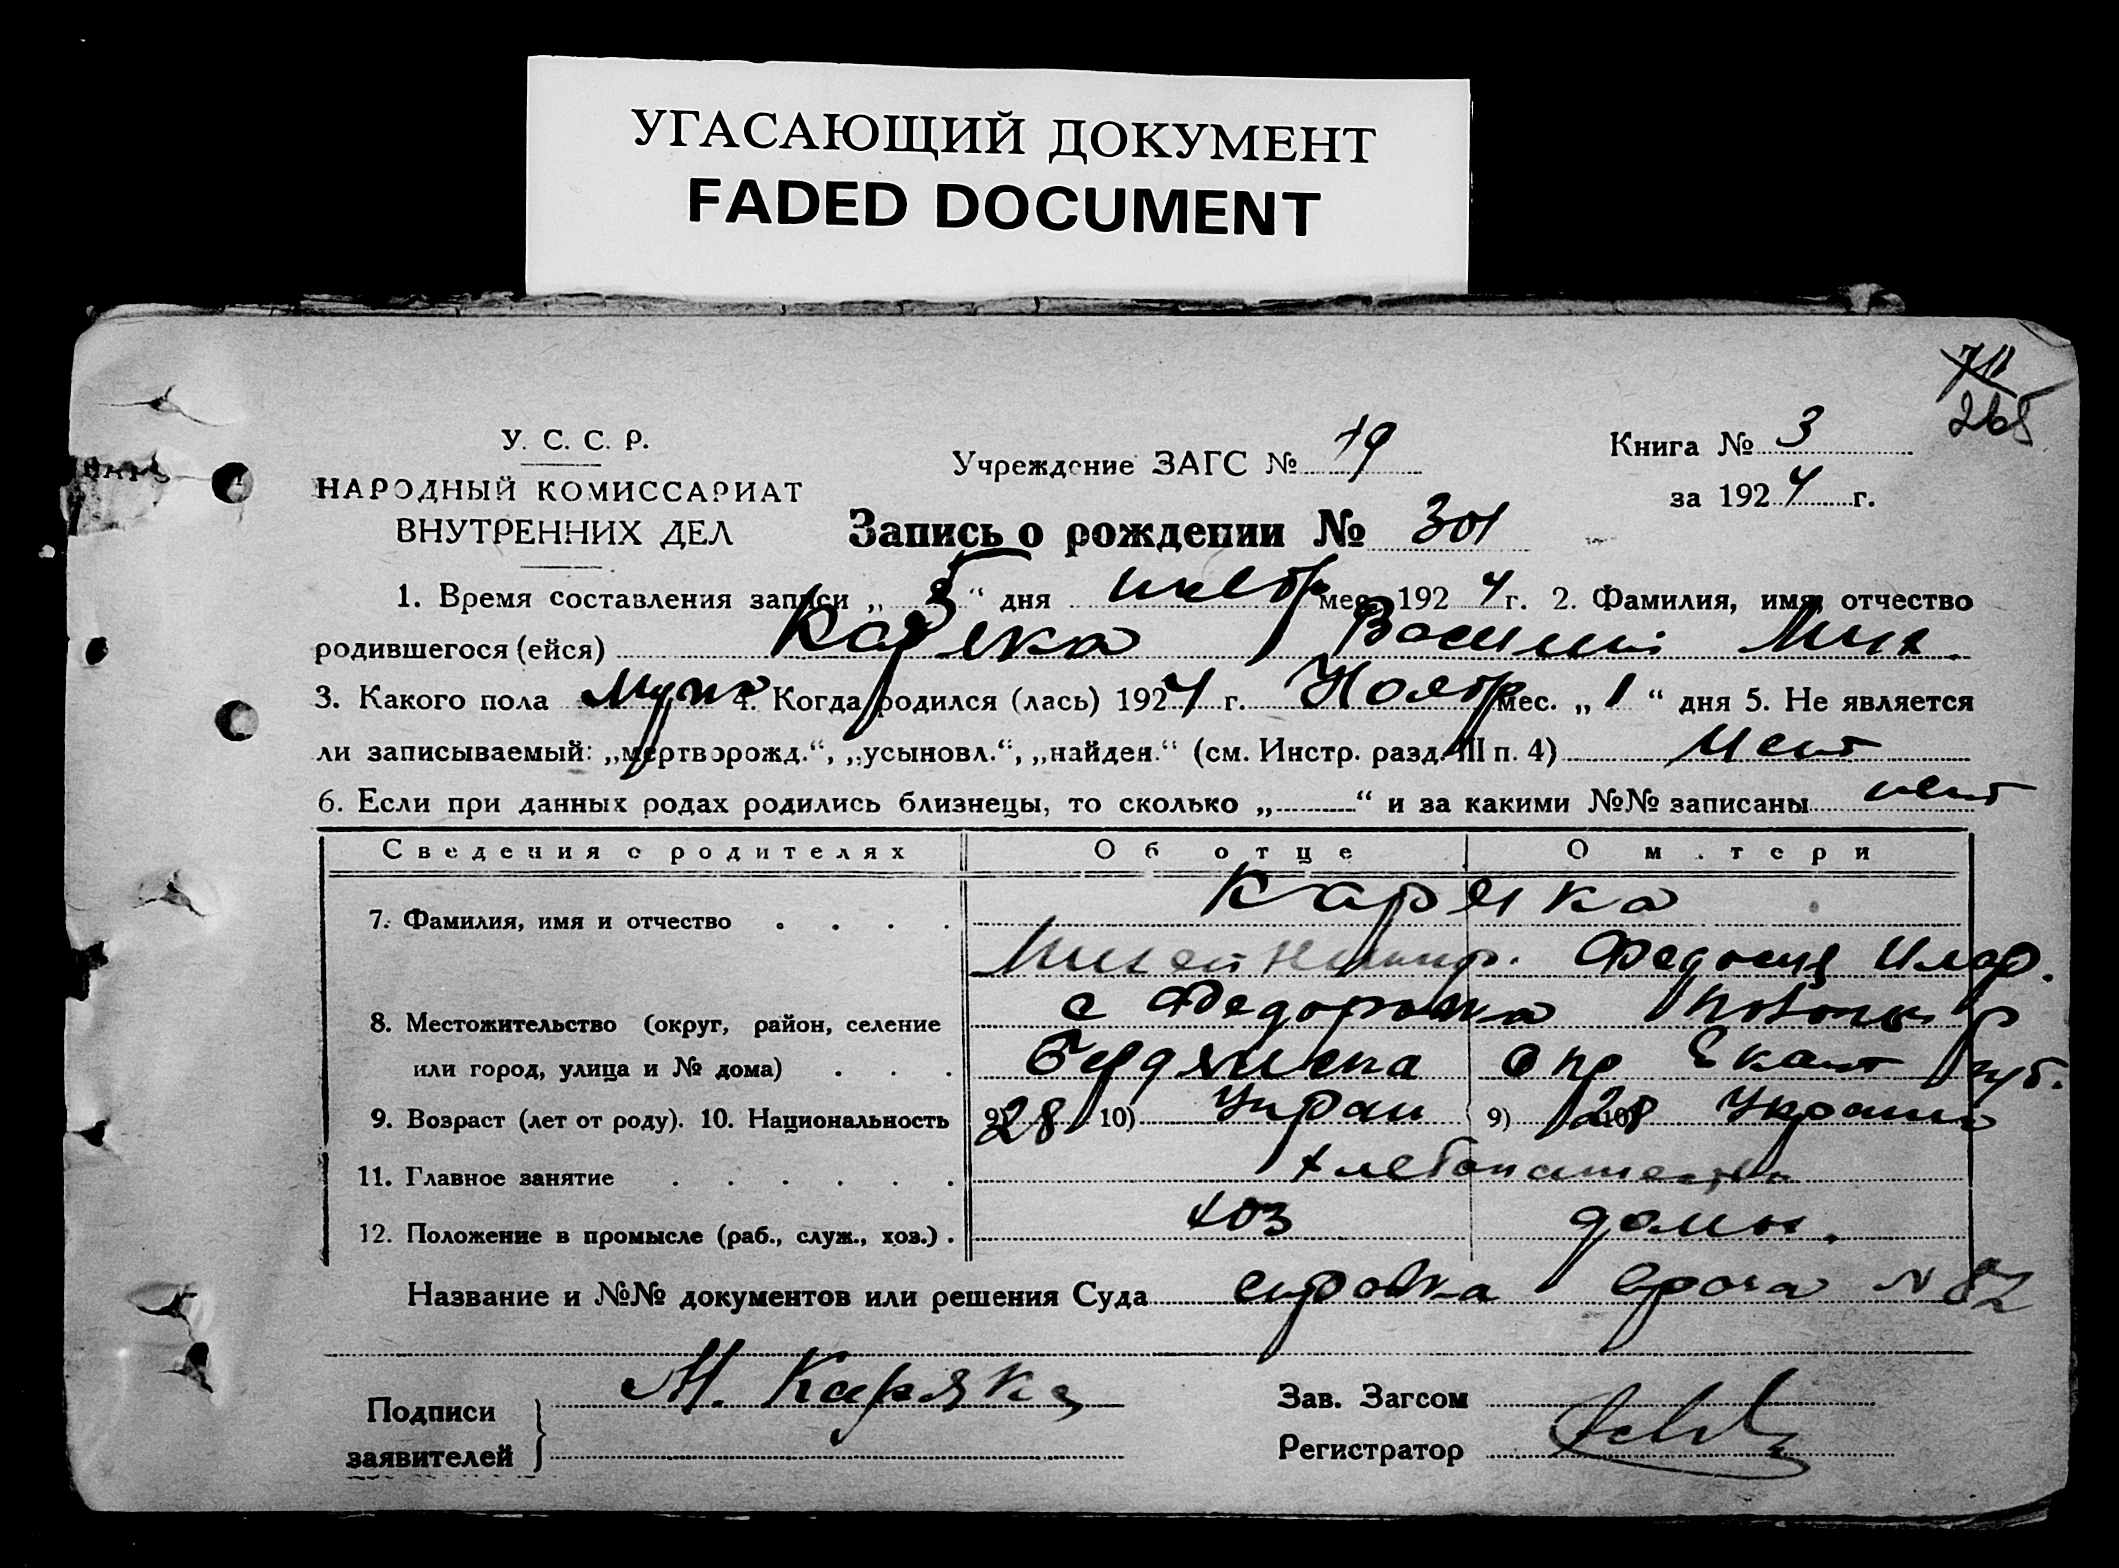 УГАСАЮЩИЙ ДОКУМЕНТ
FADED DOCUMENT
265
У. С. С. Р.
НАРОДНЫЙ КОМИССАРИАТ
ВНУТРЕННИХ ДЕЛ
Учреждение ЗАГС № 19
Книга № 3
за 1924 г.
Запись о рождении № 301
1. Время составления записи „ 5 “ дня ноября мес. 1924 г. 2. Фамилия, имя, отчество
родившегося (ейся) Каряка Василий Мих.
3. Какого пола Муж 4. Когда родился (лась) 1924 г. Ноябр мес. „ 1 “ дня 5. Не является
ли записываемый: „мертворожд.“, „усыновл.“, „найден.“ (см. Инстр. разд. III п. 4) нет
6. Если при данных родах родились близнецы, то сколько „ “ и за какими №№ записаны нет
Сведения о родителях Об отце О матери
7. Фамилия, имя и отчество Каряка
Федосия Илар.
8. Местожительство (округ, район, селение с Федоровка
или город, улица и № дома) Бердянска окр Екат губ.
9. Возраст (лет от роду). 10. Национальность 9) 28 10) Украи 9) 28 10) Украин
11. Главное занятие хлебопашество
12. Положение в промысле (раб., служ., хоз.) хоз домн.
Название и №№ документов или решения Суда справка врача № 82
Подписи
заявителей
М. Каряка
Зав. Загсом
Регистратор